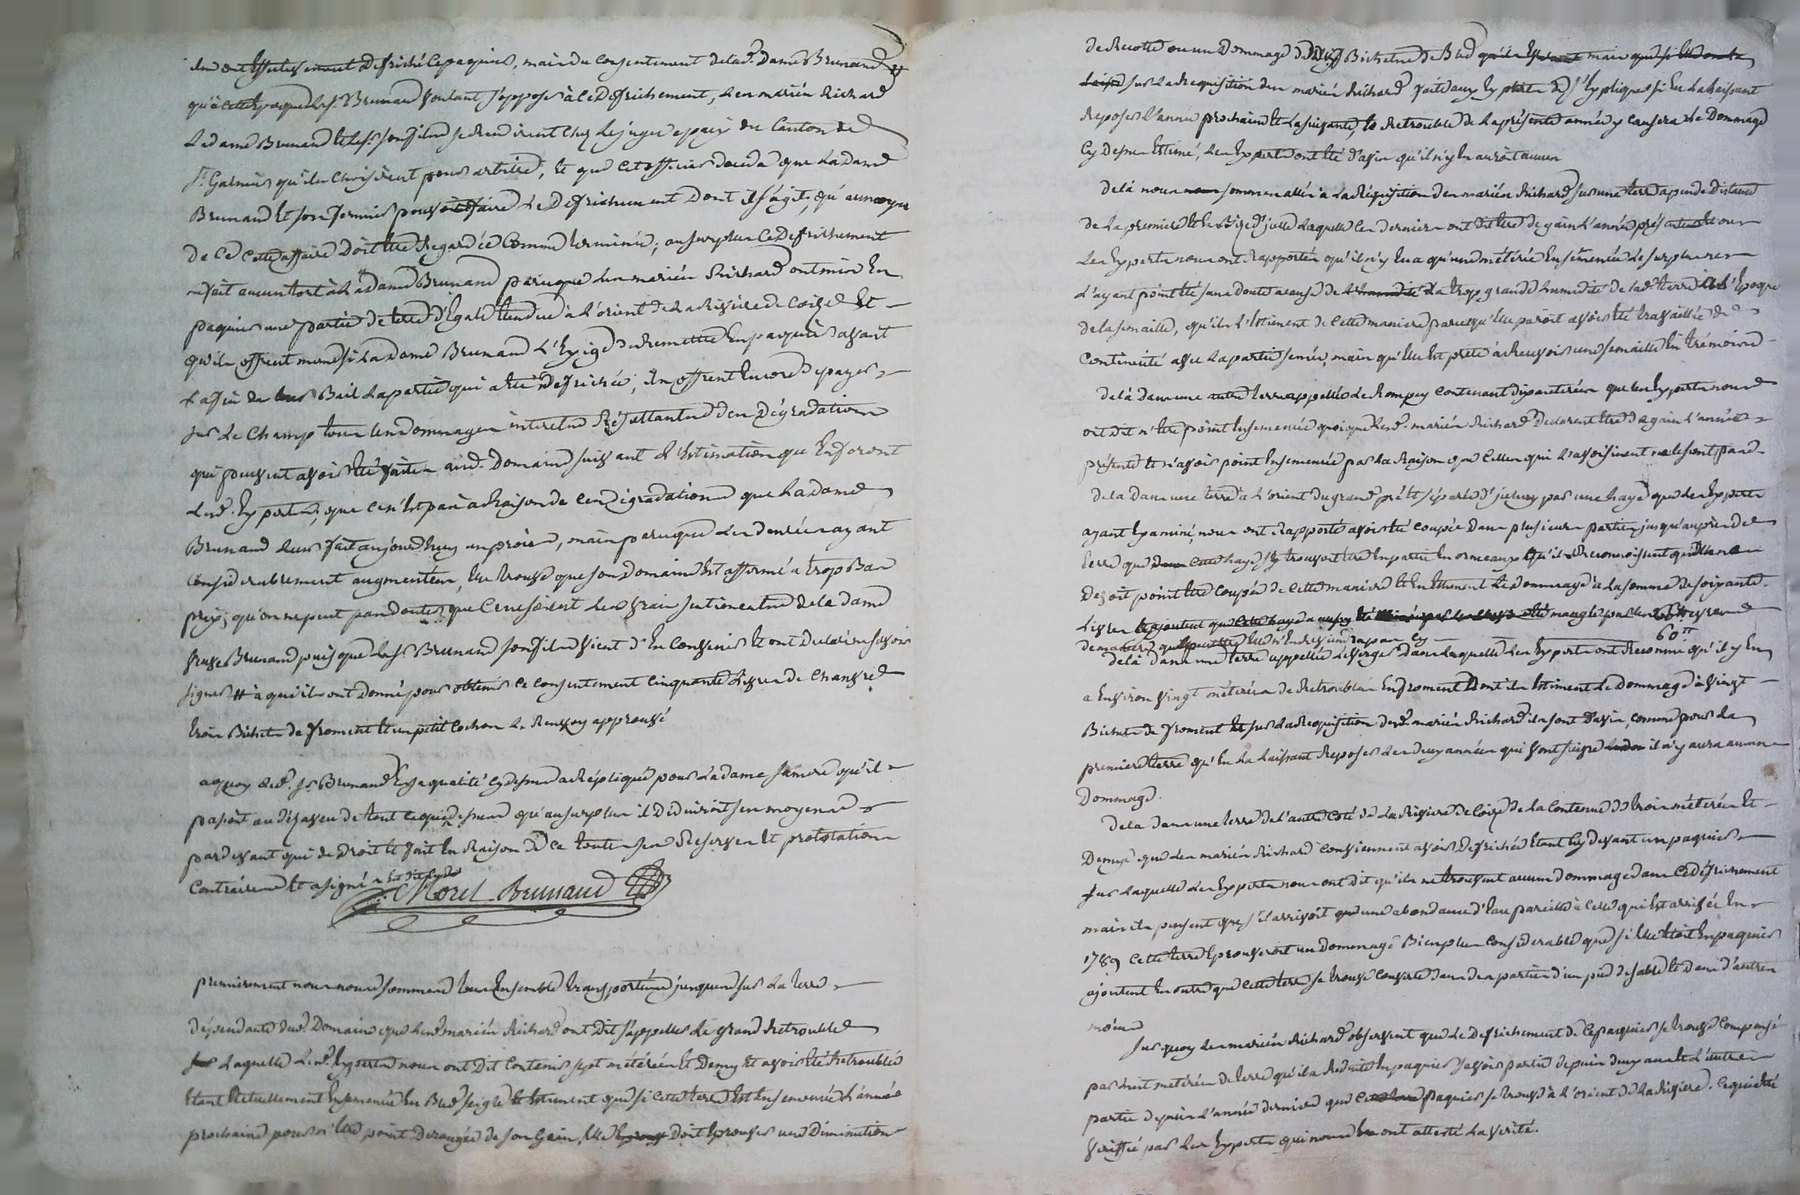 ils ont effectivement défriché ce paquier, mais du consentement de lad.e dame Brunand #
qu'à cette époque le s.r Brunand voulant s'opposer à ce défrichement, les mariés Richard
la dame Brunand et led. s.r son fils se rendirent chez le juge de paix du canton de
S.t Galmier qu'ils choisirent pour arbitre, et que cet officier décida que la dame
Brunand et son fermier pouvoit faire le défrichement dont il s'agit, qu'au moyen
de ce cette affaire doit être regardée comme terminée; au surplus ce défrichement
ne fait aucun tort à la dame Brunand parceque les mariés Richard ont mis en
paquier une partie de terre d'égale étendue à l'orient de la rivière de Coise et
qu'ils offrent même si la dame Brunand l'exige de remettre en paquier avant
la fin de leur Bail la partie qui a été défrichée; ils offrent encore de payer
sur le champ tous les dommages intérêts résultants des dégradations
qui peuvent avoir été faites aud. Domaine suivant l'estimation qu'en feront
lesd. Experts; que ce n'est pas à raison de ces dégradations que la dame
Brunand leur fait aujourd'huy un procès, mais parceque les denrées ayant
considérablement augmentées, elle trouve que son domaine est affermé à trop Bas
prix; qu'on ne peut pas douter que ce ne soient les vrais sentiments de la dame
veuve Brunand puisque le s.r Brunand son fils vient d'en convenir et ont déclaré savoir
signer # à qui ils ont donné pour obtenir ce consentement cinquante livres de chanvre
trois Bichets de froment et un petit cochon le renvoy approuvé
a quoy led. s.r Brunand en sa qualité cy dessus a répliqué pour la dame sa mere qu'il
passoit au désaveu de tout ce que dessus qu'au surplus il déduiroit ses moyens
pardevant qui de droit et fait en raison de ce toutes ses réserves et protestations
contraires et a signé
Morel Brunand
premierement nous nous sommes tous ensemble transportés jusques sur la terre
dépendante dud. Domaine que lesd. mariés Richard ont dit s'appeller le grand Retrouble
laquelle lesd. experts nous ont dit contenir sept métérées et demy et avoir été retroublée
étant actuellement ensemencée en Bled seigle et estiment que si cette terre est ensemencée l'année
prochaine pour n'être point derangée de son Gain, elle doit éprouver une diminution
de recolte ou un dommage de Bichets de Bled mais que
sur la requisition des mariés Richard faite aux experts de s'expliquer si en la laissant
reposer l'année prochaine et la suivante, le retrouble de la présente année y causera le dommage
cy dessus estimé, les experts ont été d'avis qu'il n'y en auroit aucun
de là nous sommes allés à la réquisition des mariés Richard sur une terre à peu de distance
de la premiere laquelle ces derniers ont dit être de gain l'année présente et ou
les experts nous ont rapportés qu'il n'y en a qu'une métérée ensemencée le surplus ne
l'ayant point été sans doute a cause de la trop grande humidité de lad. terre à l'époque
de la semaille, qu'ils l'estiment de cette maniere parcequ'elle paroit avoir été travaillée de
continuité avec la partie semée, mais qu'elle est prête à recevoir une semaille en trémois
de là dans une terre appellée le Rompey contenant dix métérées que les experts nous
ont dit n'être point ensemencée quoique lesd. mariés Richard declarent être de gain l'année
présente et n'avoir point ensemencée par la raison que celles qui l'avoisinent ne le sont pas
de la dans une terre à l'orient du grand pré et séparée d'iceluy par une haye que les experts
ayant examiné nous ont rapporté avoir été coupée dans plusieurs parties jusqu'auprès de
terre que cette haye se trouvant être en partie en ormeaux et qu'ils reconnoissent qu'elle ne
devoit point être coupée de cette maniere et en estiment le dommage à la somme de soixante
livres cy 60.tt
de là dans une terre appellée le Verger dans laquelle les experts ont reconnu qu'il y en
a environ vingt métérées de retroublés en froment dont ils estiment le dommage à vingt
Bichets de froment et sur la requisition desd. mariés Richard ils sont d'avis, comme pour la
premiere terre qu'en la laissant reposer les deux années qui vont suivre il n'y aura aucun
dommage.
de la dans une terre de l'autre coté de la riviere de Coise de la contenue de trois métérées et
demye que les mariés Richard conviennent avoir defrichée étant cy devant un paquier
sur laquelle les experts nous ont dit qu'ils ne trouvent aucun dommage dans ce défrichement
mais ils pensent que s'il arrivoit une abondance d'eau pareille à celle qui est arrivée en
1789 cette terre éprouveroit un dommage Bien plus considerable que si elle étoit en paquier
ajoutent en outre que cette terre se trouve couverte dans des parties d'un pied de sable et dans d'autres
moins
sur quoy les mariés Richard observent que le defrichement de ce paquier se trouve compensé
par huit metérées de terre qu'ils a reduite en paquier savoir partie depuis deux ans et l'autre
partie depuis l'année derniere que paquier se trouve à l'orient de la riviere. ce qui a été
vérifié par les experts qui nous ont attesté la vérité.